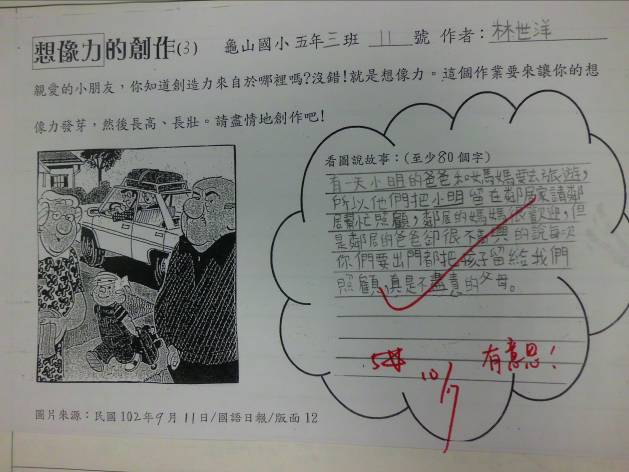 想像力的創作(3) 龜山國小五年三班 11 號 作者：林世洋
親愛的小朋友，你知道創造力來自於哪裡嗎?沒錯!就是想像力。這個作業要來讓你的想
像力發芽，然後長高、長壯。請盡情地創作吧!
看圖說故事：(至少80個字)
有一天小明的爸爸和媽媽要去旅遊，
所以他們把小明留在鄰居家請鄰
居幫忙照顧，鄰居的媽媽很歡迎，但
是鄰居的爸爸卻很不高興的說每次
你們要出門都把孩子留給我們
照顧，真是不盡責的父母。
10/17
有意思!
圖片來源：民國102年9月11日/國語日報/版面12